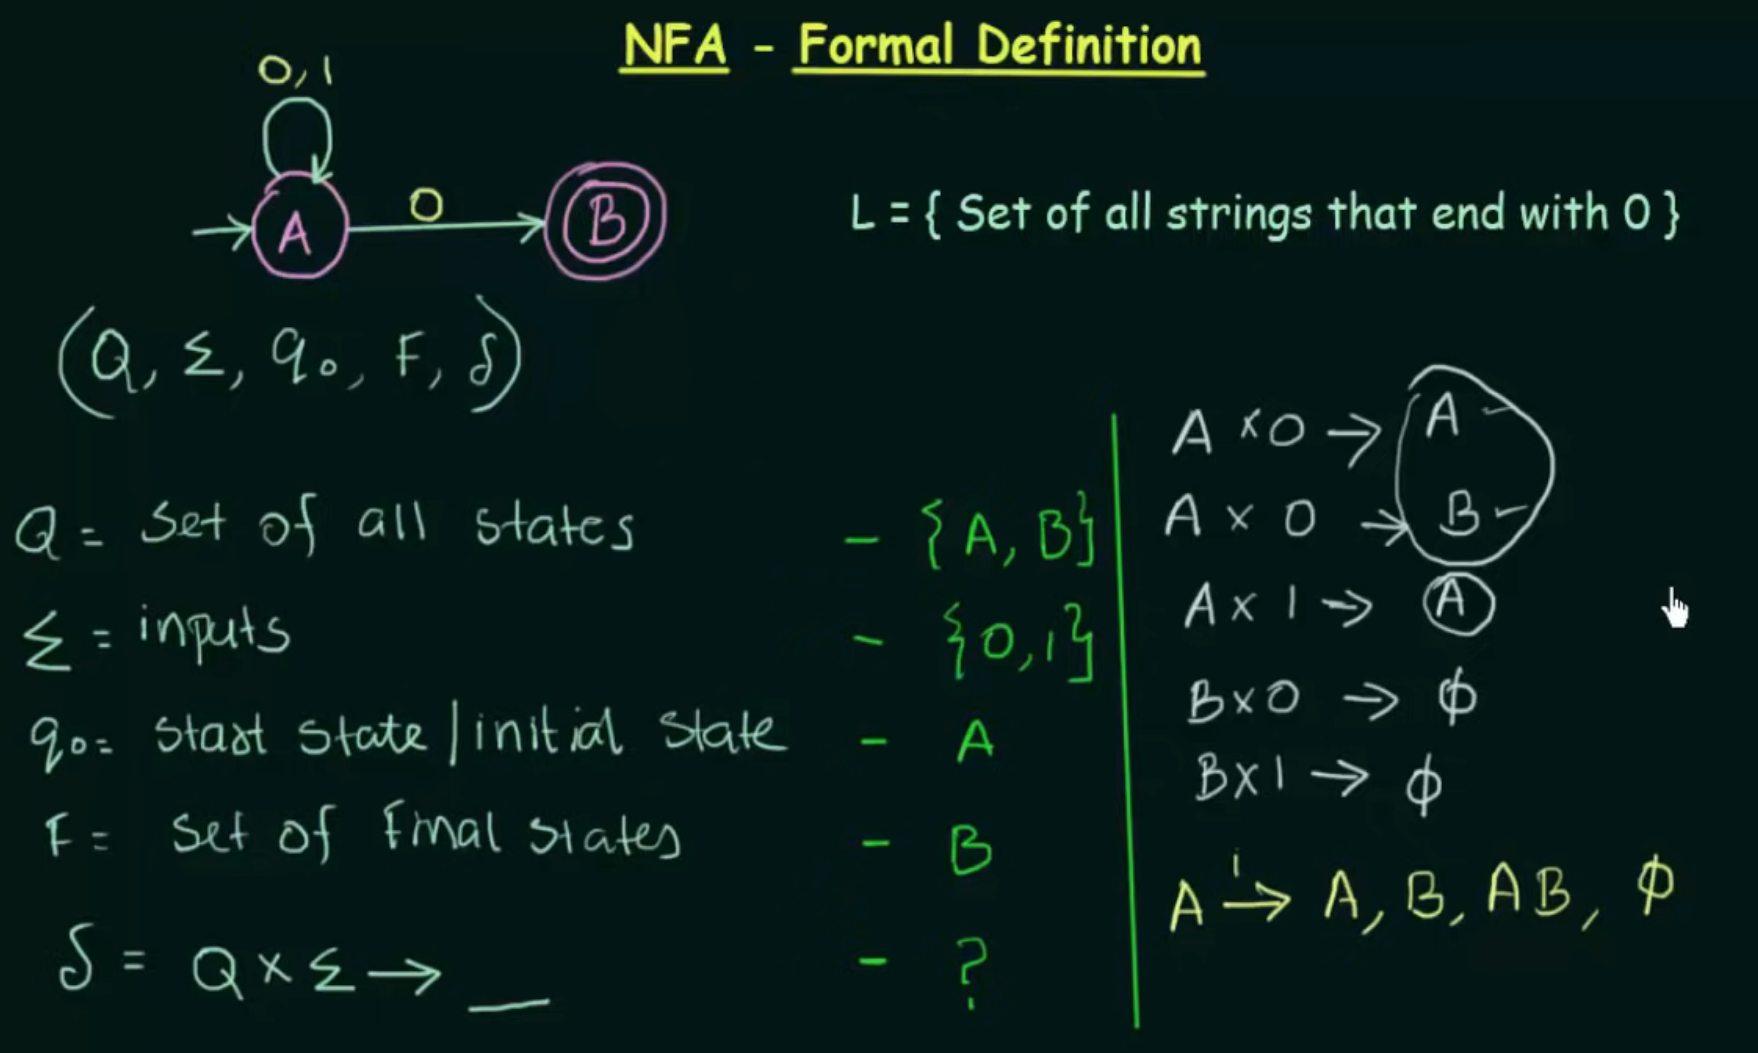 NFA - Formal Definition
0, 1
A
0
B
L = { Set of all strings that end with 0 }
(Q, Σ, q₀, F, δ)
Q = set of all states - {A, B}
Σ = inputs - {0, 1}
q₀ = start state / initial state - A
F = set of Final states - B
δ = Q × Σ → __ - ?
A × 0 → A
A × 0 → B
A × 1 → A
B × 0 → ϕ
B × 1 → ϕ
i
A → A, B, AB, ϕ